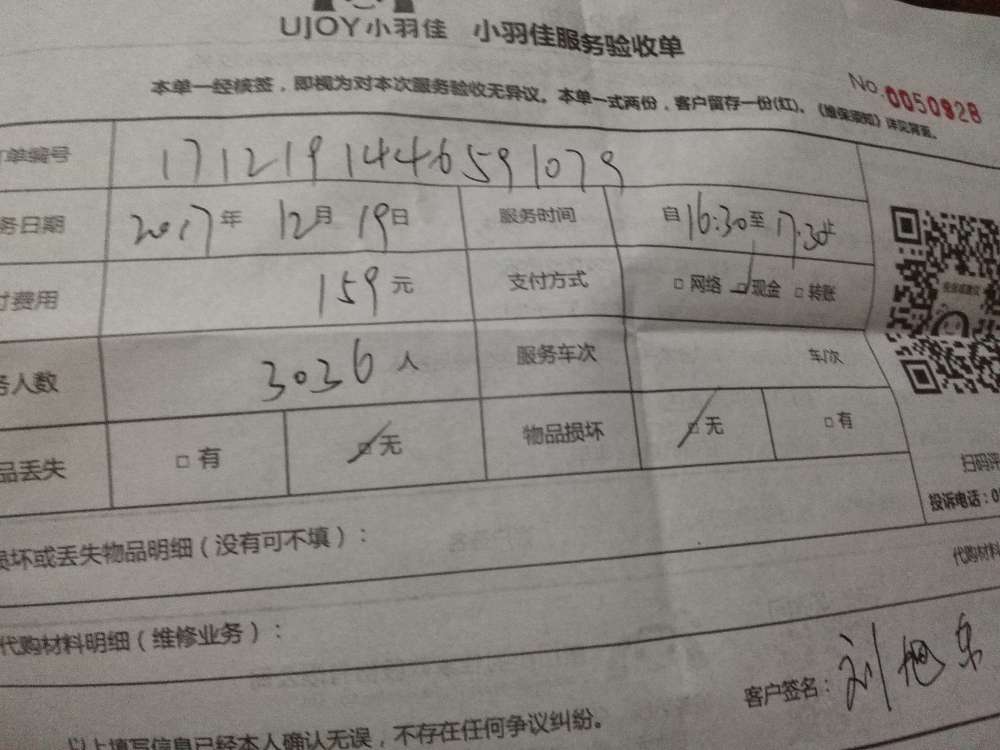 UJOY小羽佳 小羽佳服务验收单
本单一经核签，即视为对本次服务验收无异议。本单一式两份，客户留存一份(红)。《维保须知》详见背面。
No.0050928
单编号 1712191446591079
务日期 2017年 12月 19日 服务时间 自16:30至17:30止
付费用 159元 支付方式 □ 网络 □ 现金 □ 转账
务人数 3036人 服务车次 车/次
品丢失 □ 有 □ 无 物品损坏 □ 无 □ 有
扫码评
投诉电话：0
损坏或丢失物品明细（没有可不填）：
代购材料
代购材料明细（维修业务）：
客户签名：刘旭东
以上填写信息已经本人确认无误，不存在任何争议纠纷。